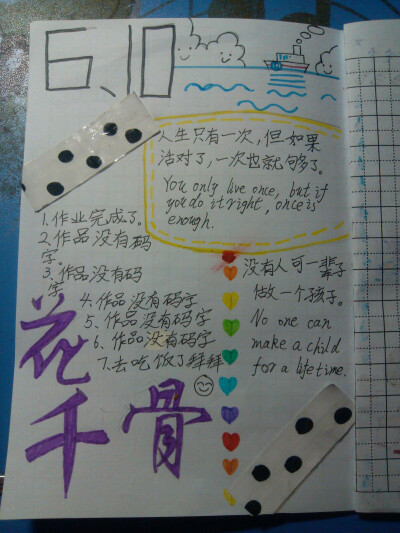 6.10
人生只有一次，但如果
活对了，一次也就够了。
You only live once, but if
you do it right, once is
enough.
1.作业完成了。
2.作品没有码
字。
3.作品没有码
字
4.作品没有码字
5.作品没有码字
6.作品没有码字
7.去吃饭了拜拜
没有人可一辈子
做一个孩子。
No one can
make a child
for a lifetime.
花
千骨